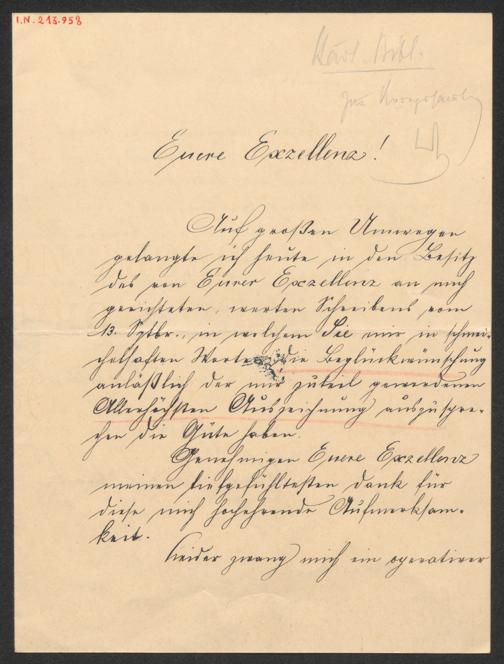 I.N. 213.958
Euere Exzellenz!
Auf großen Umwegen
gelangte ich heute in den Besitz
des von Eurer Exzellenz an mich
gerichteten, werten Schreibens vom
13. Sptbr., in welchem Sie mir in schmei-
chelhaften Worten die Beglückwünschung
anläßlich der mir zuteil gewordenen
Allerhöchsten Auszeichnung auszuspre-
chen die Güte haben.
Genehmigen Euere Exzellenz
meinen tiefgefühltesten Dank für
diese mich hochehrende Aufmerksam-
keit.
Leider zwang mich ein operativer